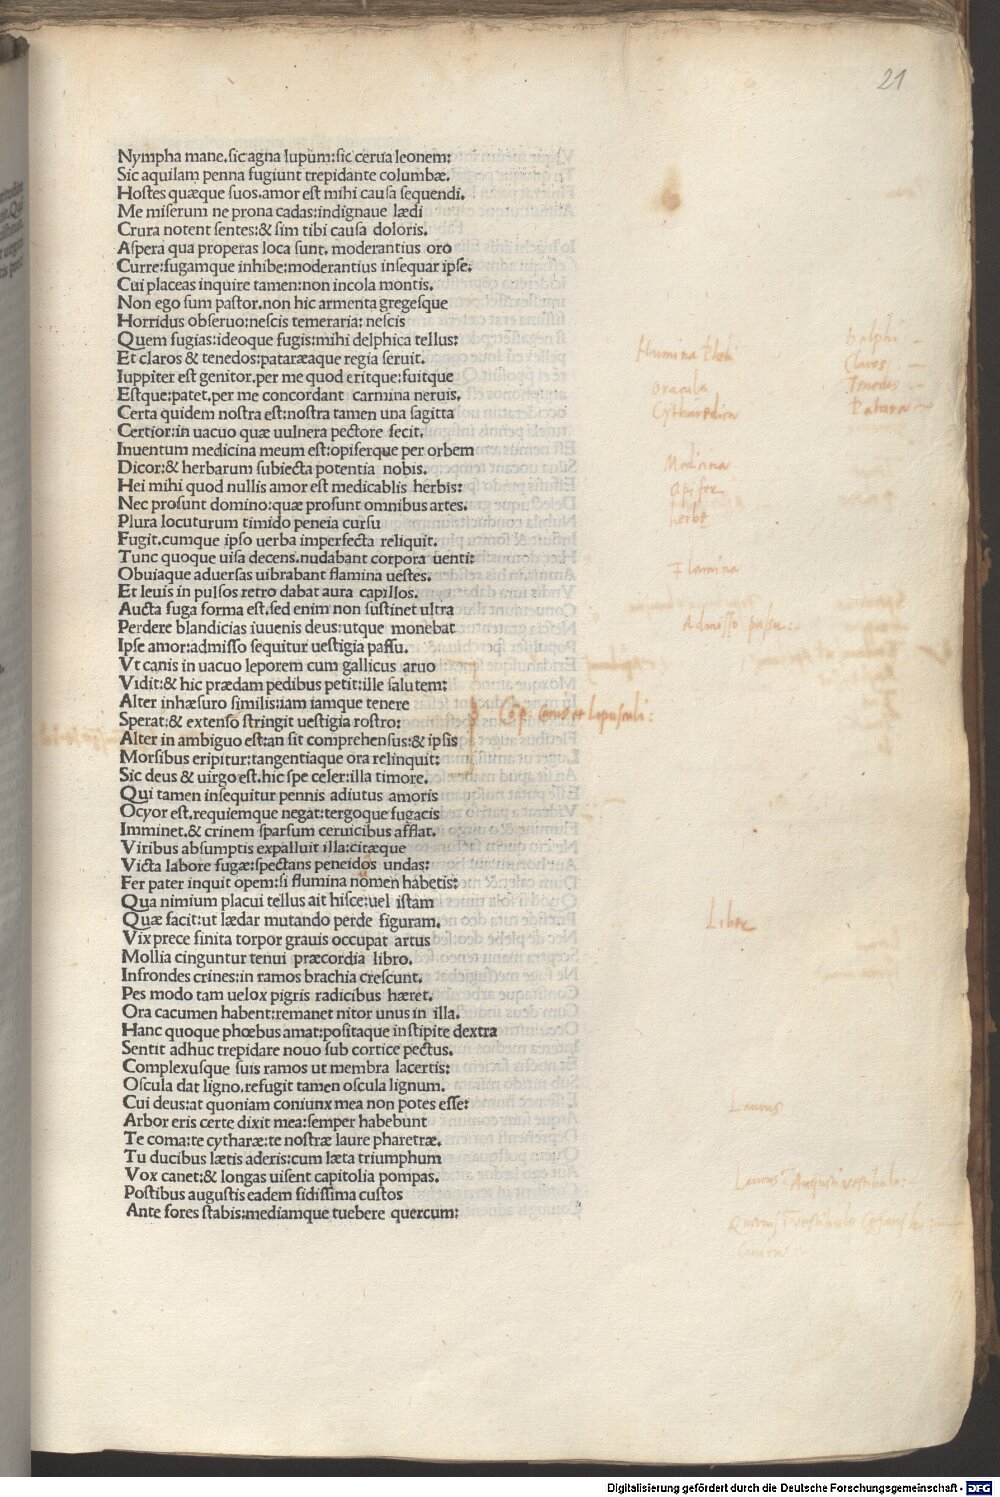 21
Nympha mane.sic agna lupum:sic cerua leonem:
Sic aquilam penna fugiunt trepidante columbæ.
Hostes quæque suos.amor est mihi causa sequendi.
Me miserum ne prona cadas:indignaue lædi
Crura notent sentes:& sim tibi causa doloris.
Aspera qua properas loca sunt. moderantius oro
Curre:fugamque inhibe:moderantius insequar ipse.
Cui placeas inquire tamen:non incola montis.
Non ego sum pastor.non hic armenta gregesque
Horridus obseruo:nescis temeraria: nescis
Quem fugias:ideoque fugis:mihi delphica tellus:
Et claros & tenedos:pataræaque regia seruit.
Iuppiter est genitor.per me quod eritque:fuitque
Estque:patet.per me concordant carmina neruis.
Certa quidem nostra est:nostra tamen una sagitta
Certior:in uacuo quæ uulnera pectore fecit.
Inuentum medicina meum est:opiferque per orbem
Dicor:& herbarum subiecta potentia nobis.
Hei mihi quod nullis amor est medicablis herbis:
Nec prosunt domino:quæ prosunt omnibus artes.
Plura locuturum timido peneia cursu
Fugit.cumque ipso uerba imperfecta reliquit.
Tunc quoque uisa decens.nudabant corpora uenti:
Obuiaque aduersas uibrabant flamina uestes.
Et leuis in pulsos retro dabat aura capillos.
Aucta fuga forma est.sed enim non sustinet ultra
Perdere blandicias iuuenis deus:utque monebat
Ipse amor:admisso sequitur uestigia passu.
Vt canis in uacuo leporem cum gallicus aruo
Vidit:& hic prædam pedibus petit:ille salutem:
Alter inhæsuro similis:iam iamque tenere
Sperat:& extenso stringit uestigia rostro:
Alter in ambiguo est:an sit comprehensus:& ipsis
Morsibus eripitur:tangentiaque ora relinquit:
Sic deus & uirgo est.hic spe celer:illa timore.
Qui tamen insequitur pennis adiutus amoris
Ocyor est.requiemque negat:tergoque fugacis
Imminet.& crinem sparsum ceruicibus afflat.
Viribus absumptis expalluit illa:citæque
Victa labore fugæ:spectans peneidos undas:
Fer pater inquit opem:si flumina nomen habetis:
Qua nimium placui tellus ait hisce:uel istam
Quæ facit:ut lædar mutando perde figuram.
Vix prece finita torpor grauis occupat artus
Mollia cinguntur tenui præcordia libro.
Infrondes crines:in ramos brachia crescunt.
Pes modo tam uelox pigris radicibus hæret.
Ora cacumen habent:remanet nitor unus in illa.
Hanc quoque phœbus amat:positaque instipite dextra
Sentit adhuc trepidare nouo sub cortice pectus.
Complexusque suis ramos ut membra lacertis:
Oscula dat ligno.refugit tamen oscula lignum.
Cui deus:at quoniam coniunx mea non potes esse:
Arbor eris certe dixit mea:semper habebunt
Te coma:te cytharæ:te nostræ laure pharetræ.
Tu ducibus lætis aderis:cum læta triumphum
Vox canet:& longas uisent capitolia pompas.
Postibus augustis eadem fidissima custos
Ante fores stabis:mediamque tuebere quercum:
Numina Phebi
Delphi
Claros
Tenedos
Patara
Oracula
Medicina
Opifer
herbe
Flamina
Admisso passu:
Liber
Laurus
Digitalisierung gefördert durch die Deutsche Forschungsgemeinschaft - DFG